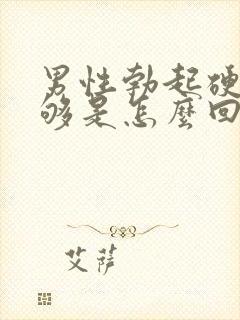 男性勃起硬
够是怎麼回
艾萨